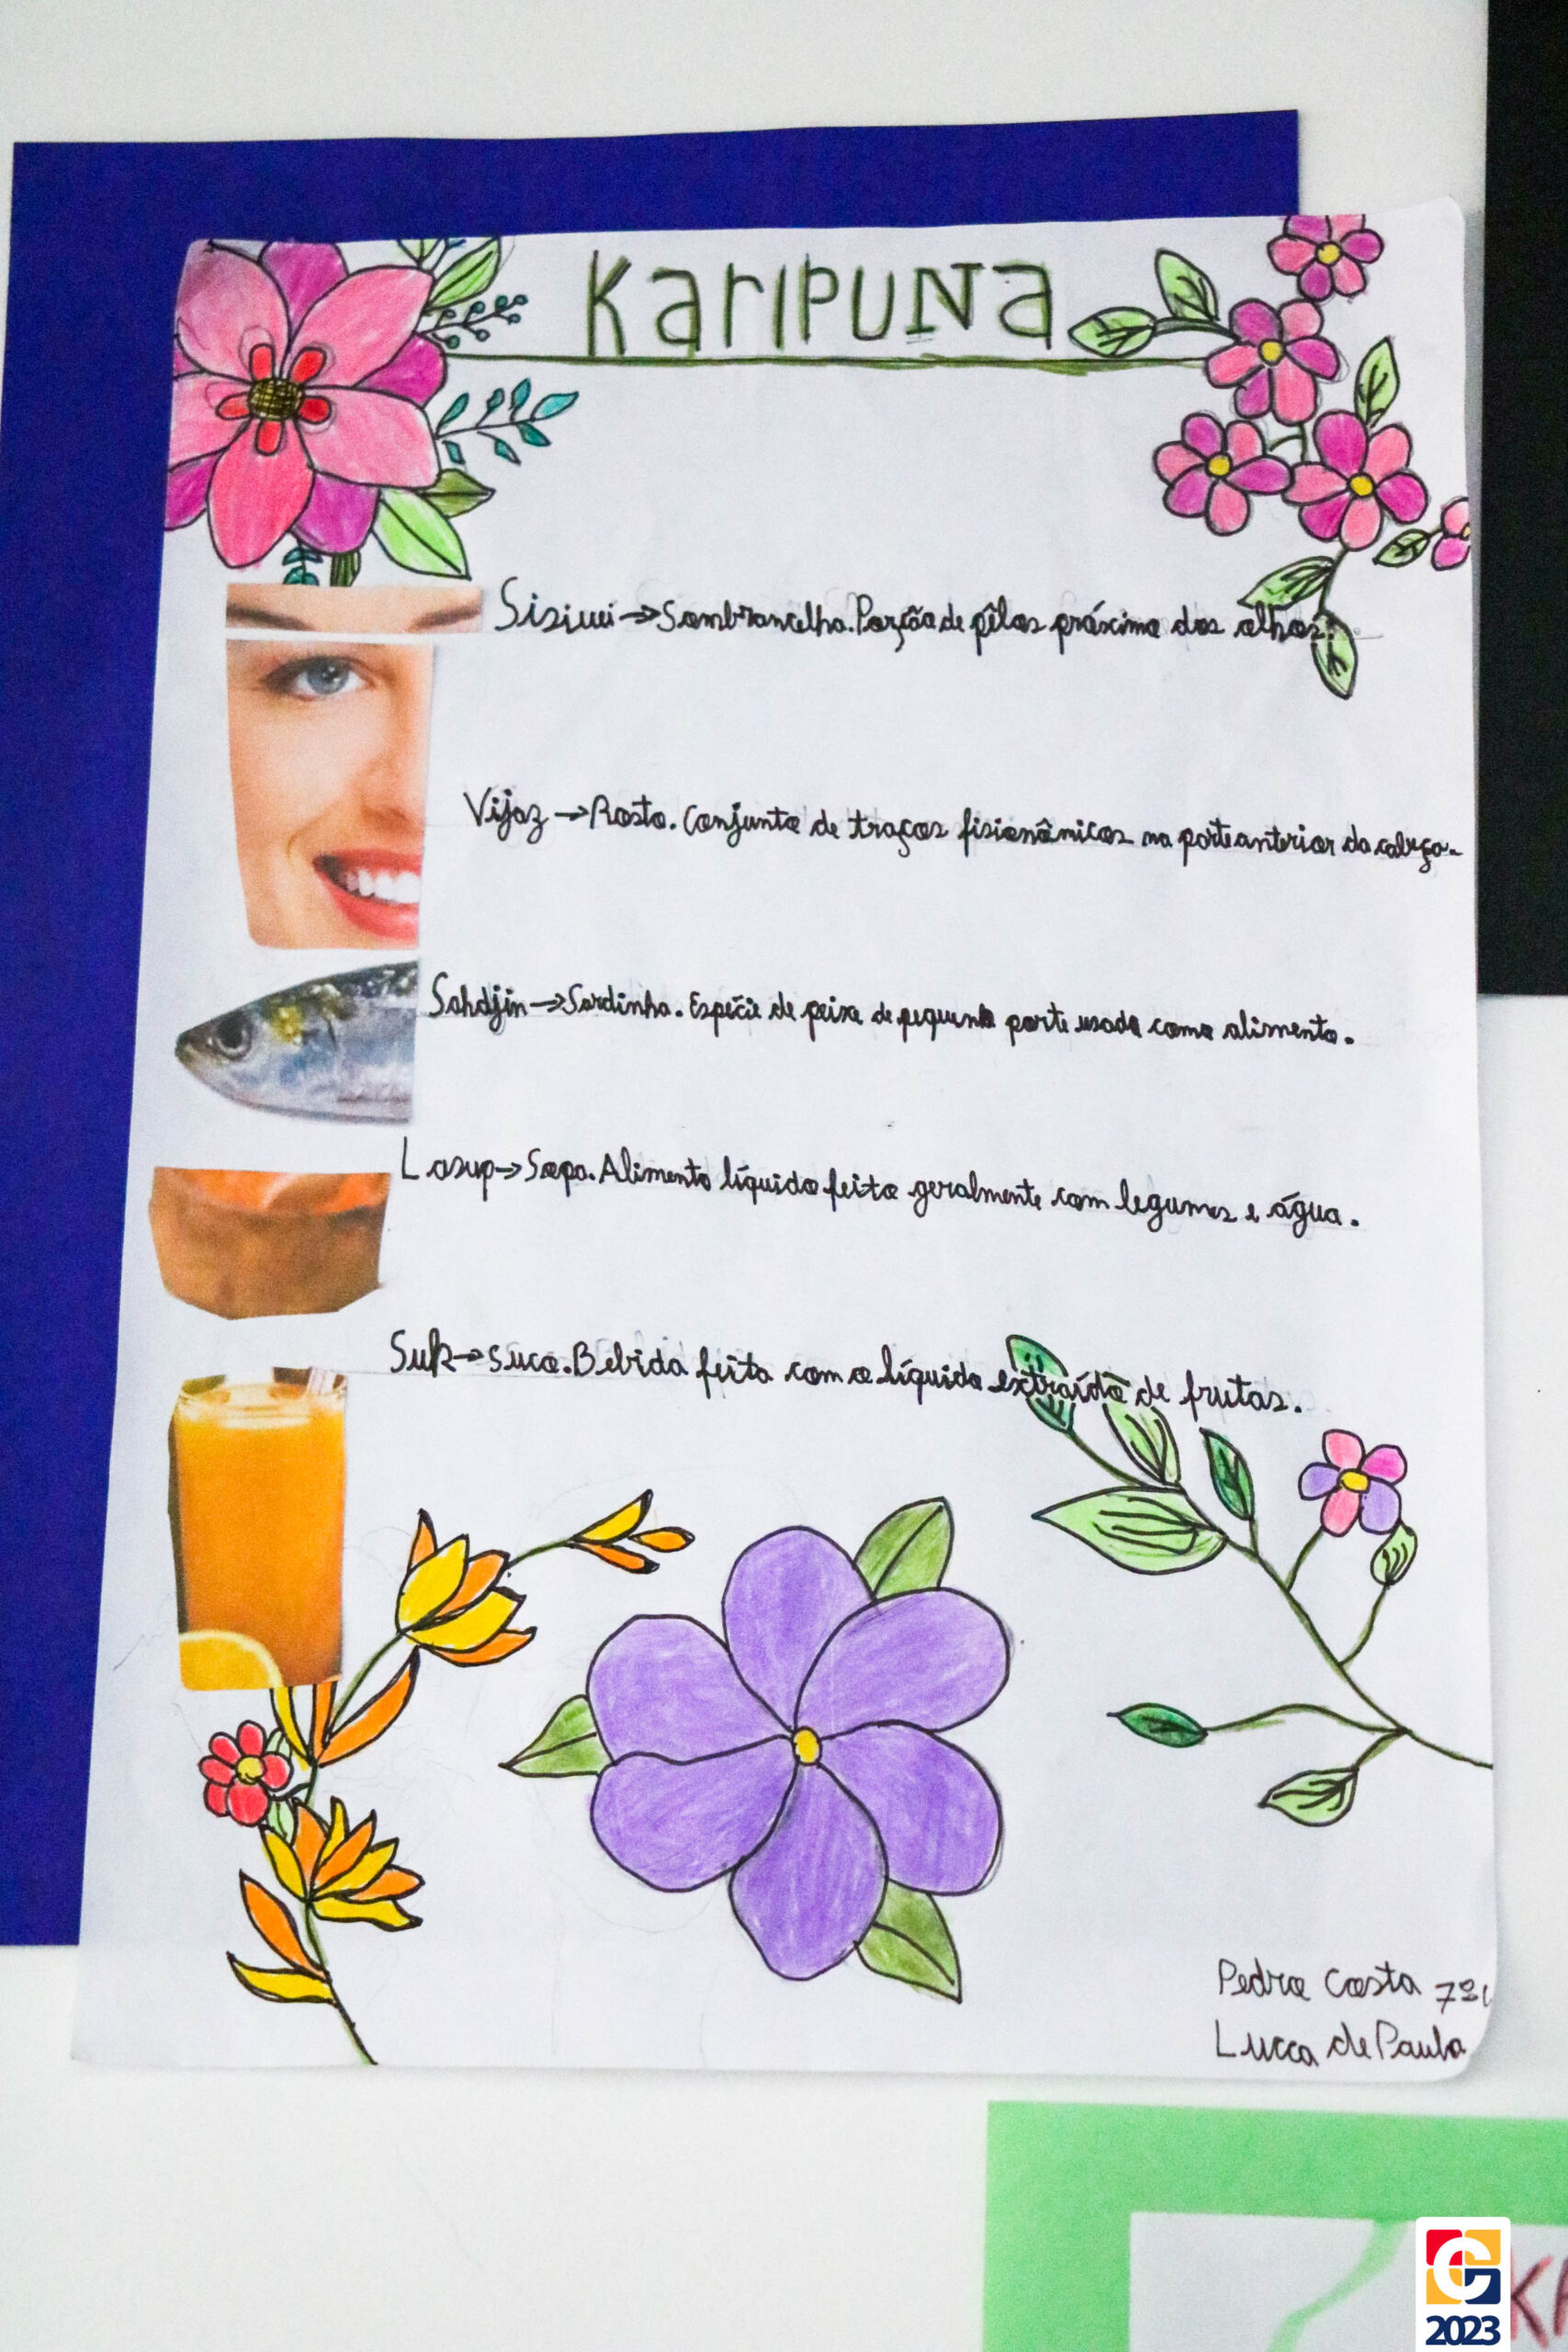 Karipuna
Sisiuei → Sombrancelha. Porção de pêlos próxima dos olhos.
Vijaz → Rosto. Conjunto de traços fisionômicos na parte anterior da cabeça.
Sahdjin → Sardinha. Espécie de peixe de pequeno porte usado como alimento.
Lasup → Sopa. Alimento líquido feito geralmente com legumes e água.
Suk → suco. Bebida feita com o líquido extraído de frutas.
Pedro Costa 7º
Lucca de Paula
2023